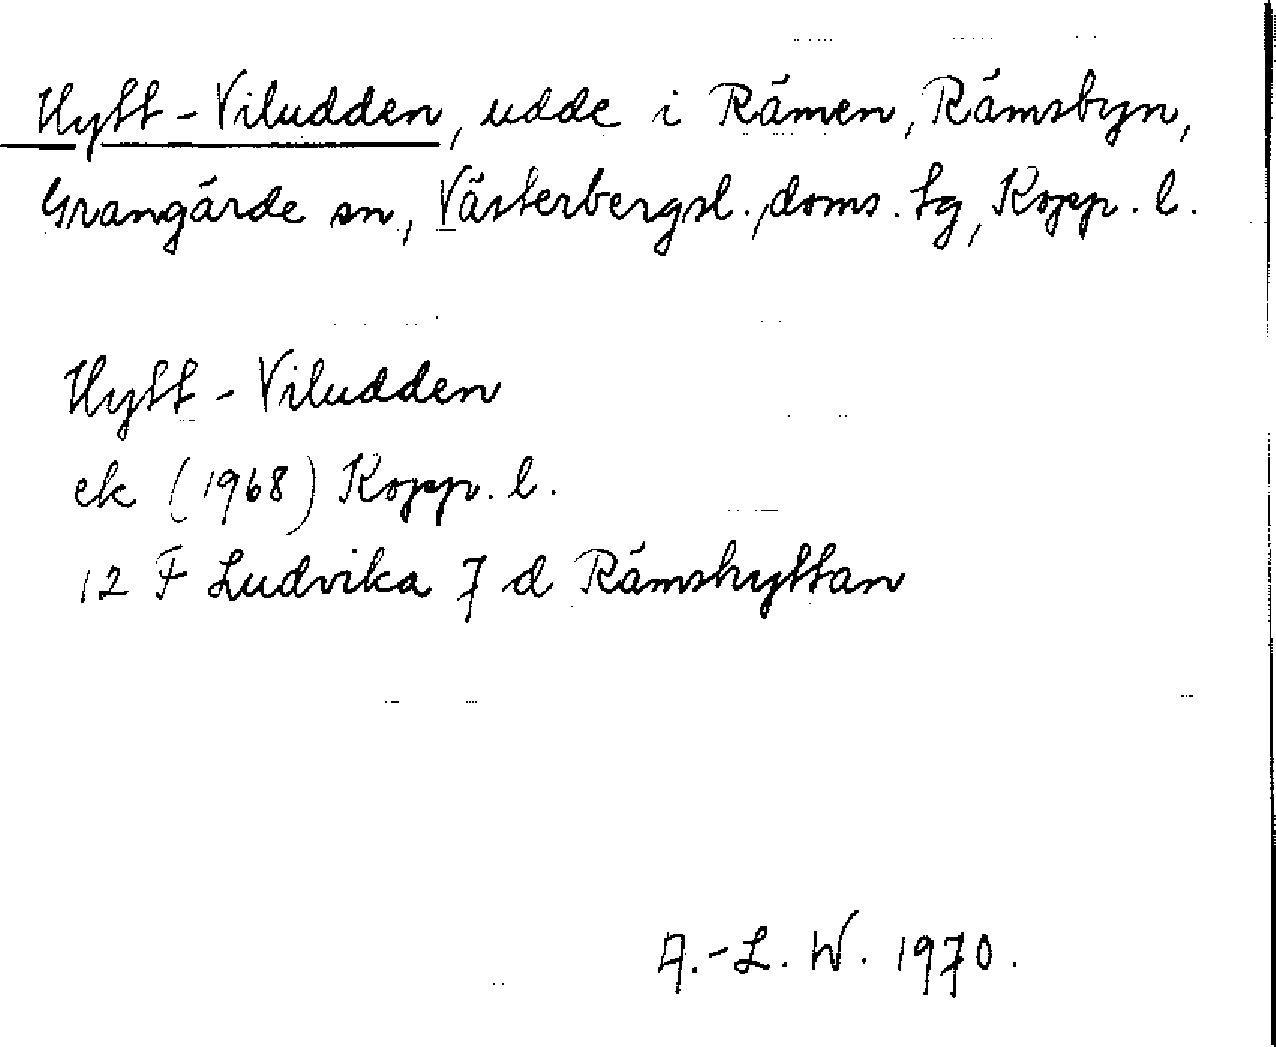 Hytt-Viludden, udde i Rämen, Rämsbyn,
Grangärde sn, Västerbergsl. doms. tg, Kopp. l.
Hytt-Viludden
ek (1968) Kopp. l.
12 F Ludvika 7 d Rämshyttan
A.-L. W. 1970.